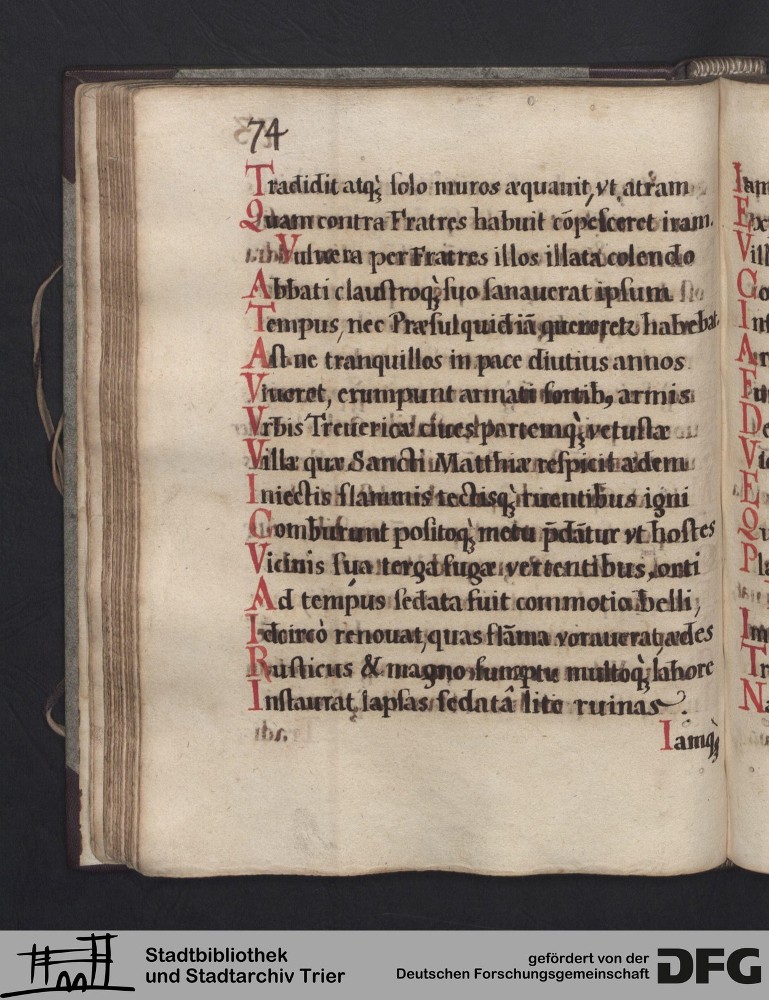 74
Tradidit atqꝫ solo muros æquauit, vt atram
Quam contra Fratres habuit cōpesceret iram.
Vulnera per Fratres illos illata colendo
Abbati claustroqꝫ suo sanauerat ipsum
Tempus, nec Præsul quid iā quereretꝛ habebat,
Ast ne tranquillos in pace diutius annos
Viueret, erumpunt armati fortibꝰ armis
Vrbis Treuericæ ciues partemqꝫ vetustæ
Villæ quæ Sancti Matthiæ respicit ædem
Iniectis flammis tectisqꝫ ruentibus igni
Comburunt positoqꝫ metu p̄dātur vt hostes
Vicinis sua terga fugæ vertentibus, onti
Ad tempus sedata fuit commotio belli,
Idcircò renouat, quas flāma vorauerat, ædes
Rusticus & magno sumptu multoqꝫ labore
Instaurat lapsas sedatâ lite ruinas.
Iamqꝫ
Iam
Ex
Vill
Co
In
Ar
De
Vi
E
Qu
Pla
Im
Tr
Na
Stadtbibliothek
und Stadtarchiv Trier
gefördert von der
Deutschen Forschungsgemeinschaft
DFG